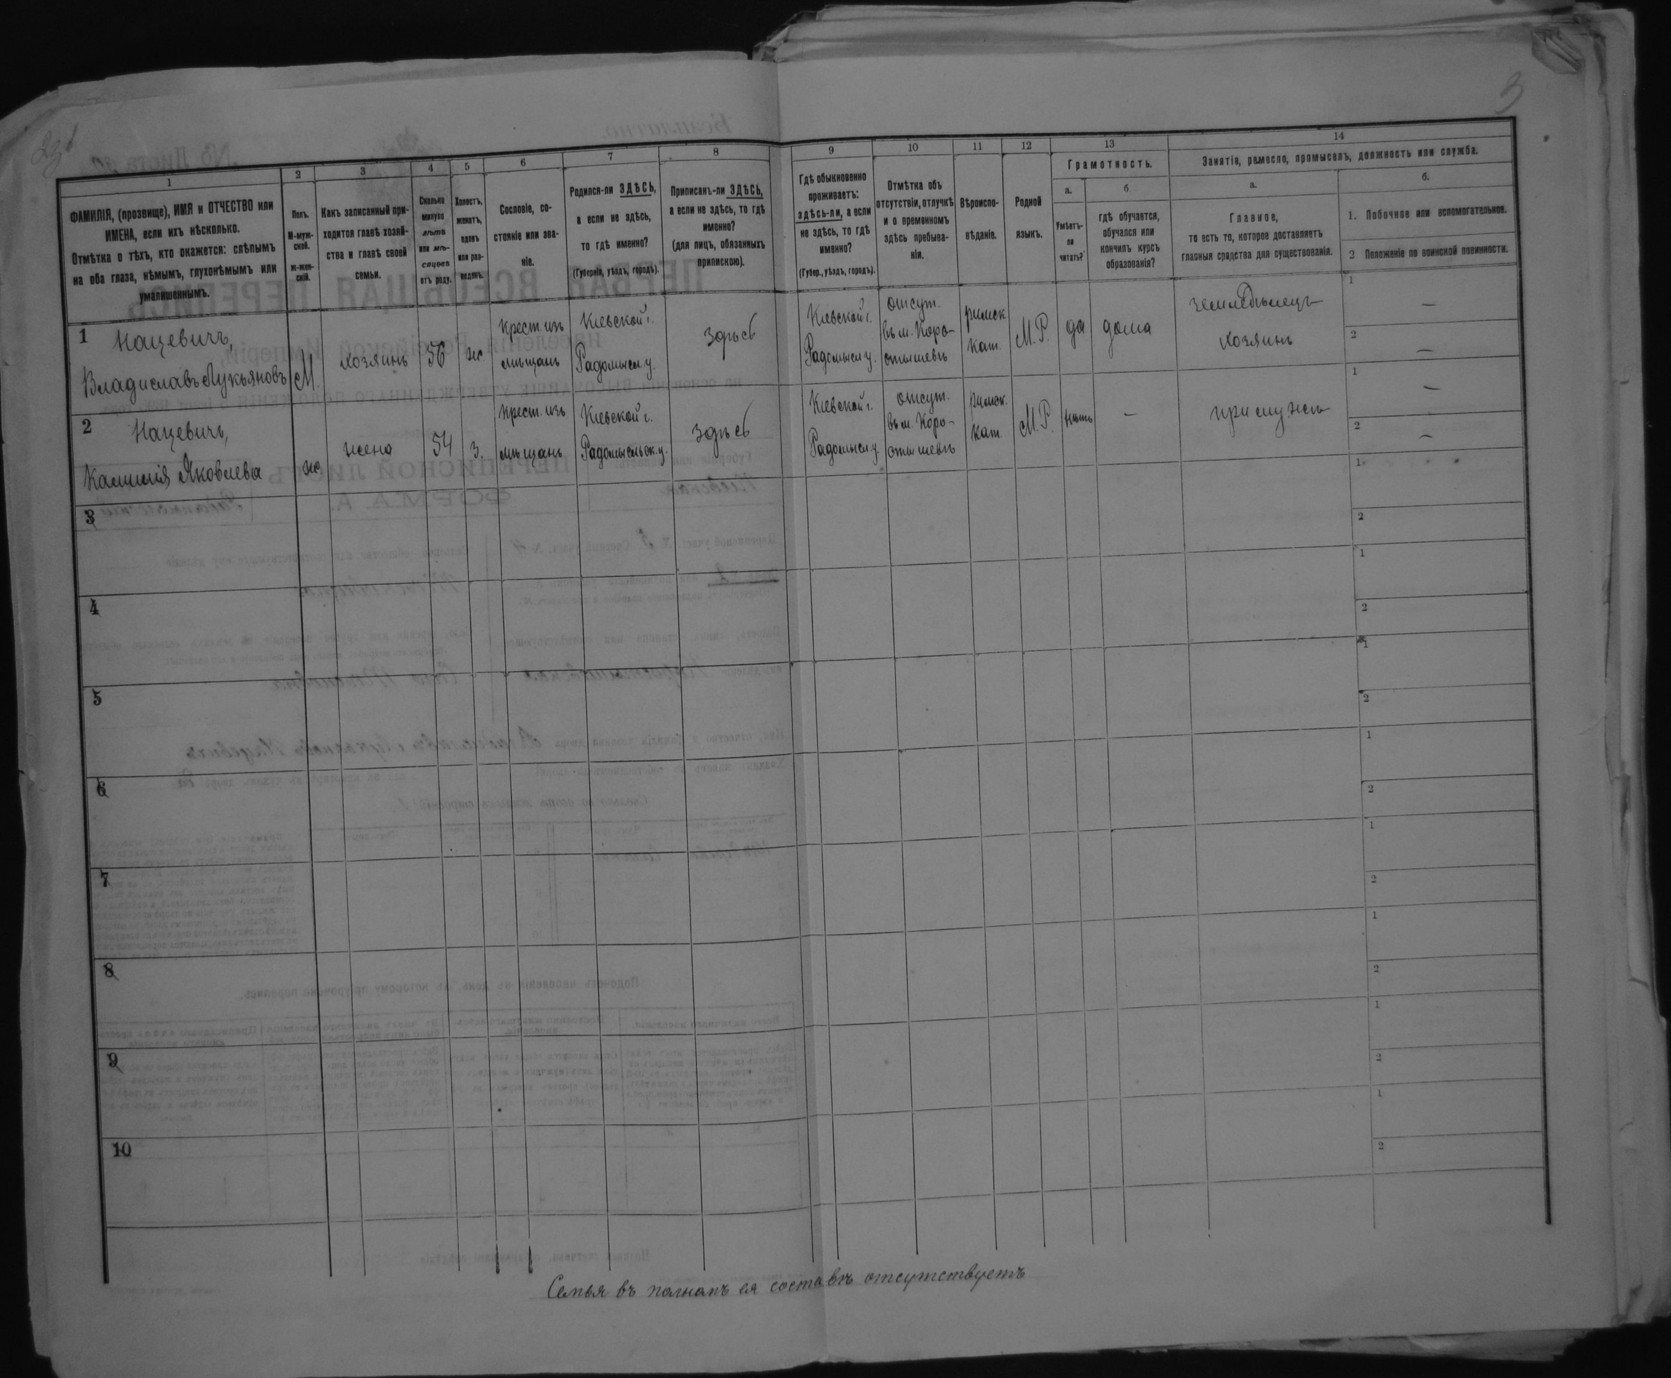 3
1
2
3
4
5
6
7
8
9
10
11
12
13
14
ФАМИЛІЯ, (прозвище), ИМЯ и ОТЧЕСТВО или
ИМЕНА, если ихъ нѣсколько.
Отмѣтка о тѣхъ, кто окажется: слѣпымъ
на оба глаза, нѣмымъ, глухонѣмымъ или
умалишеннымъ.
Полъ.
М-муж-
ской.
ж-жен-
скій.
Какъ записанный при-
ходится главѣ хозяй-
ства и главѣ своей
семьи.
Сколько
минуло
лѣтъ
или мѣ-
сяцевъ
отъ роду.
Холостъ,
женатъ,
вдовъ
или раз-
веденъ.
Сословіе, со-
стояніе или зва-
ніе.
Родился-ли ЗДѢСЬ,
а если не здѣсь,
то гдѣ именно?
(Губернія, уѣздъ, городъ).
Приписанъ-ли ЗДѢСЬ,
а если не здѣсь, то гдѣ
именно?
(для лицъ, обязанныхъ
припискою).
Гдѣ обыкновенно
проживаетъ:
здѣсь-ли, а если
не здѣсь, то гдѣ
именно?
(Губер., уѣздъ, городъ).
Отмѣтка объ
отсутствіи, отлучкѣ
и о временномъ
здѣсь пребыва-
ніи.
Вѣроиспо-
вѣданіе.
Родной
языкъ.
Грамотность.
а.
Умѣетъ-
ли
читать?
б
гдѣ обучается,
обучался или
кончилъ курсъ
образованія?
Занятія, ремесло, промыселъ, должность или служба.
а.
Главное,
то есть то, которое доставляетъ
главныя средства для существованія.
б.
1. Побочное или вспомогательное.
2 Положеніе по воинской повинности.
1
Нацевичъ,
Владиславъ Лукьяновъ
М.
хозяинъ
56
ж
крест. изъ
мѣщанъ
Кіевской г.
Радомысл. у.
здѣсь
Кіевской г.
Радомысл у.
отсут.
въ м. Коро-
стышевѣ
римск
кат.
М.Р.
да
дома
земледѣлецъ
хозяинъ
1 —
2 —
2
Нацевичъ,
Яковлева
ж
жена
54
з.
крест. изъ
мѣщанъ
Кіевской г.
Радомысльск. у.
здѣсь
Кіевской г.
Радомысл у
отсут.
въ м. Коро-
стышевѣ
римск.
кат
М.Р.
нѣтъ
—
при мужѣ
1 —
2 —
3
1
2
4
1
2
5
1
2
6
1
2
7
1
2
8
1
2
9
1
2
10
1
2
Семья въ полномъ ея составѣ отсутствуетъ